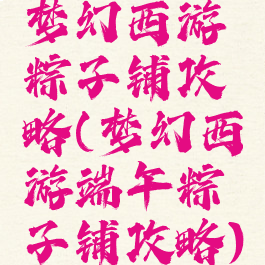 梦幻西游
粽子铺攻
略(梦幻西
游端午粽
子铺攻略)